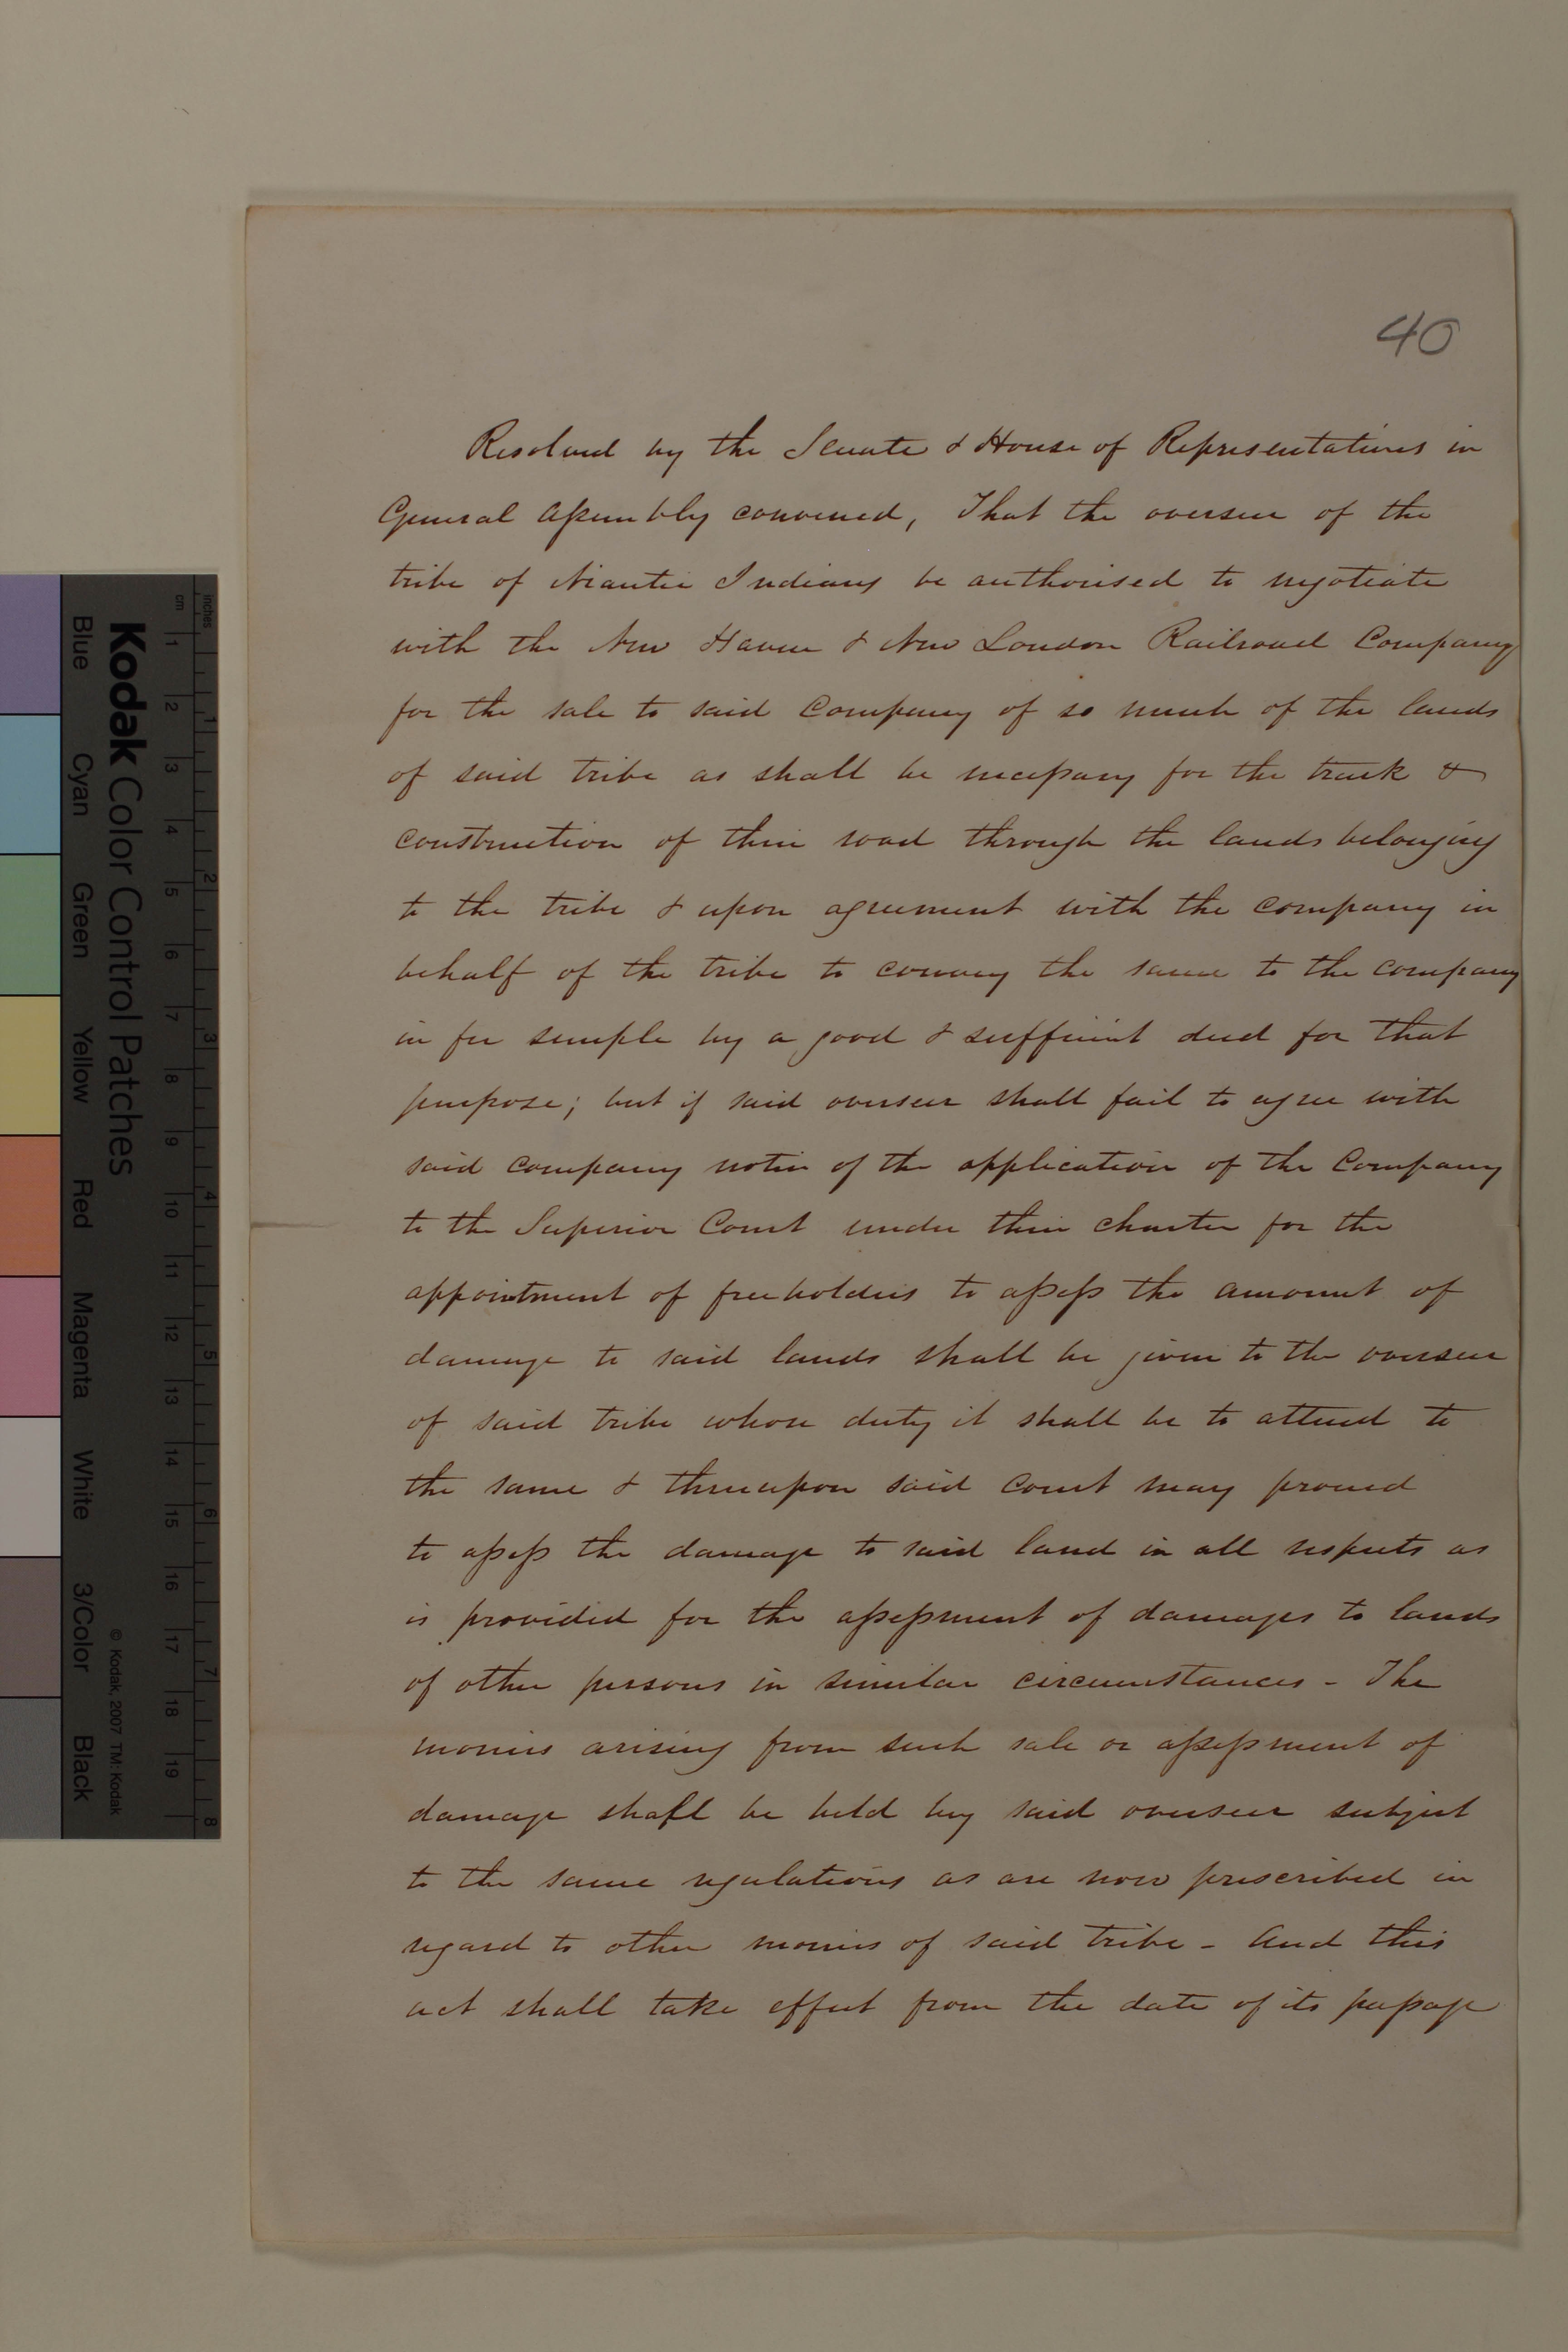 40
Resolved by the Senate & House of Representatives in
General Assembly convened, That the overseer of the
tribe of Niantic Indians be authorised to negotiate
with the New Haven & New London Railroad Company
for the sale to said Company of so much of the lands
of said tribe as shall be necessary for the track &
construction of their road through the lands belonging
to the tribe & upon agreement with the company in
behalf of the tribe to convey the same to the company
in fee simple by a good & sufficient deed for that
purpose; but if said overseer shall fail to agree with
said company notice of the application of the Company
to the Superior Court under their charter for the
appointment of freeholders to assess the amount of
damage to said lands shall be given to the overseer
of said tribe whose duty it shall be to attend to
the same & thereupon said court may proceed
to assess the damage to said land in all respects as
is provided for the assessment of damages to lands
of other persons in similar circumstances - The
monies arising from such sale or assessment of
damage shall be held by said overseer subject
to the same regulations as are now prescribed in
regard to other monies of said tribe - And this
act shall take effect from the date of its passage
Kodak Color Control Patches
© Kodak, 2007 TM: Kodak
Blue Cyan Green Yellow Red Magenta White 3/Color Black
inches 1 2 3 4 5 6 7 8
cm 1 2 3 4 5 6 7 8 9 10 11 12 13 14 15 16 17 18 19